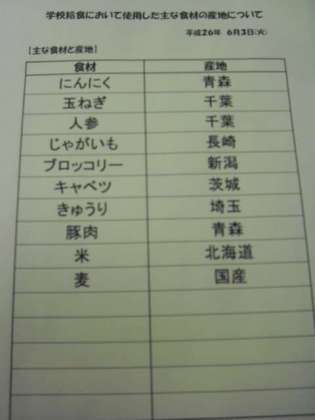 学校給食において使用した主な食材の産地について
平成26年 6月3日(火)
[主な食材と産地]
食材 産地
にんにく 青森
玉ねぎ 千葉
人参 千葉
じゃがいも 長崎
ブロッコリー 新潟
キャベツ 茨城
きゅうり 埼玉
豚肉 青森
米 北海道
麦 国産